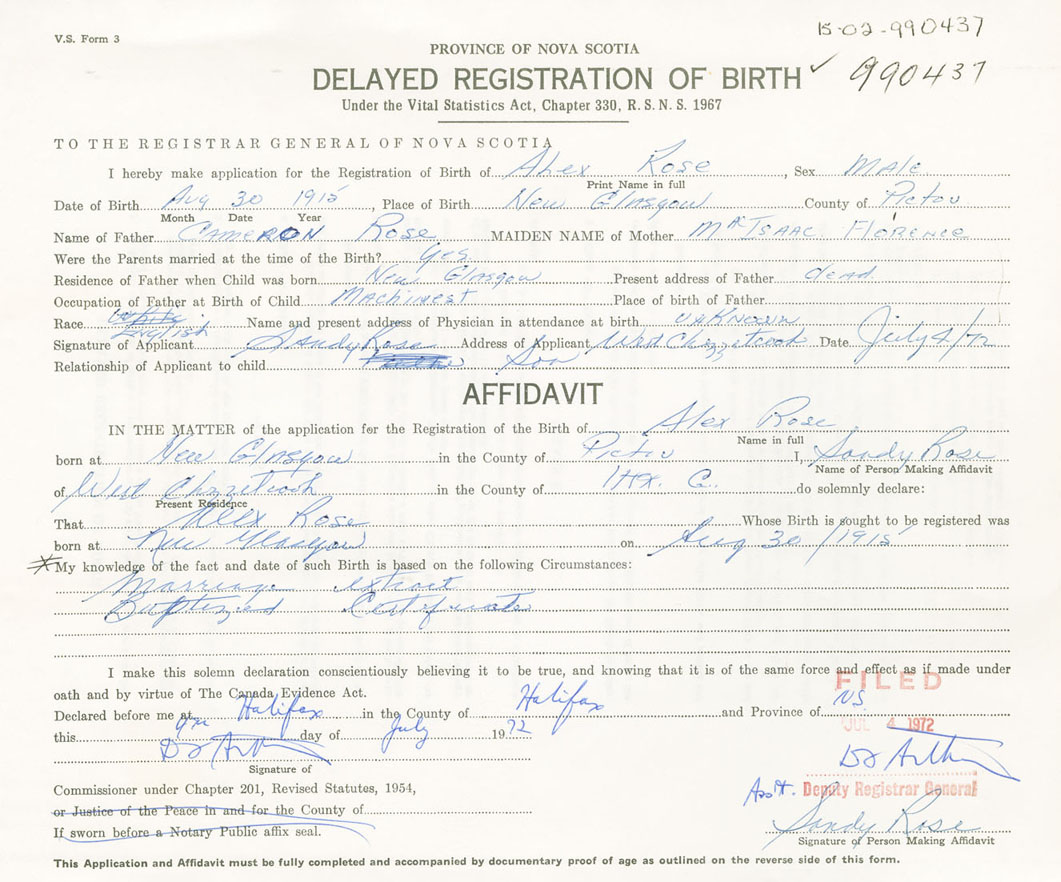 V.S. Form 3
15-02-990437
PROVINCE OF NOVA SCOTIA
DELAYED REGISTRATION OF BIRTH ✓ 990437
Under the Vital Statistics Act, Chapter 330, R.S.N.S. 1967
TO THE REGISTRAR GENERAL OF NOVA SCOTIA
I hereby make application for the Registration of Birth of Alex Rose, Sex Male
Print Name in full
Date of Birth Aug 30 1915, Place of Birth New Glasgow County of Pictou
Month Date Year
Name of Father Cameron Rose MAIDEN NAME of Mother MacIsaac Florence
Were the Parents married at the time of the Birth? yes
Residence of Father when Child was born New Glasgow Present address of Father dead
Occupation of Father at Birth of Child Machinest Place of birth of Father
Race White English Name and present address of Physician in attendance at birth unknown
Signature of Applicant Sandy Rose Address of Applicant West Chezzetcook Date July 4/72
Relationship of Applicant to child Son
AFFIDAVIT
IN THE MATTER of the application for the Registration of the Birth of Alex Rose
Name in full
born at New Glasgow in the County of Pictou I, Sandy Rose
Name of Person Making Affidavit
of West Chzzetcook in the County of Hfx. Co. do solemnly declare:
Present Residence
That Alex Rose Whose Birth is sought to be registered was
born at New Glasgow on Aug 30/1915
My knowledge of the fact and date of such Birth is based on the following Circumstances:
Marriage extract
Baptized Certificate
I make this solemn declaration conscientiously believing it to be true, and knowing that it is of the same force and effect as if made under
oath and by virtue of The Canada Evidence Act.
FILED
Declared before me at Halifax in the County of Halifax and Province of NS
this 4th day of July 1972
JUL 4 1972
Signature of
Commissioner under Chapter 201, Revised Statutes, 1954,
Asst. Deputy Registrar General
or Justice of the Peace in and for the County of
If sworn before a Notary Public affix seal.
Sandy Rose
Signature of Person Making Affidavit
This Application and Affidavit must be fully completed and accompanied by documentary proof of age as outlined on the reverse side of this form.